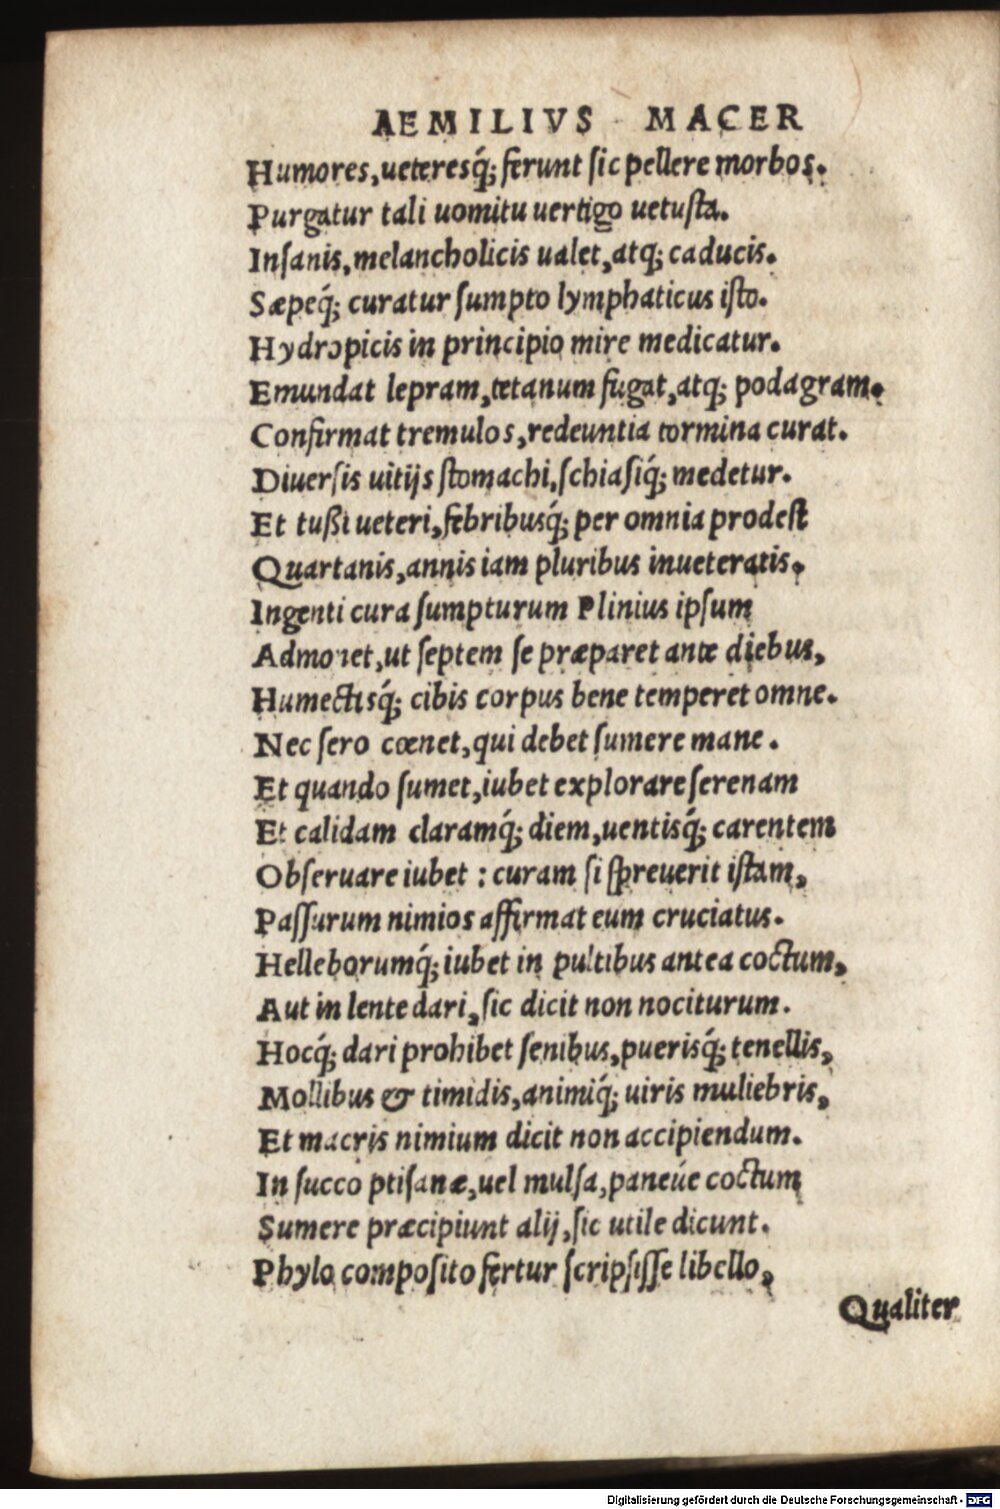 AEMILIVS MACER
Humores, ueteresq́; ferunt sic pellere morbos.
Purgatur tali uomitu uertigo uetusta.
Insanis, melancholicis ualet, atq; caducis.
Sæpeq́; curatur sumpto lymphaticus isto.
Hydropicis in principio mire medicatur.
Emundat lepram, tetanum fugat, atq; podagram.
Confirmat tremulos, redeuntia tormina curat.
Diuersis uitijs stomachi, schiasiq́; medetur.
Et tußi ueteri, febribusq́; per omnia prodest
Quartanis, annis iam pluribus inueteratis.
Ingenti cura sumpturum Plinius ipsum
Admonet, ut septem se præparet ante diebus,
Humectisq́; cibis corpus bene temperet omne.
Nec sero cœnet, qui debet sumere mane.
Et quando sumet, iubet explorare serenam
Et calidam claramq́; diem, uentisq́; carentem
Obseruare iubet : curam si spreuerit istam,
Passurum nimios affirmat eum cruciatus.
Helleborumq́; iubet in pultibus antea coctum,
Aut in lente dari, sic dicit non nociturum.
Hocq́; dari prohibet senibus, puerisq́; tenellis,
Mollibus & timidis, animiq́; uiris muliebris,
Et macris nimium dicit non accipiendum.
In succo ptisanæ, uel mulsa, paneúe coctum
Sumere præcipiunt alij, sic utile dicunt.
Phylo composito fertur scripsisse libello,
Qualiter
Digitalisierung gefördert durch die Deutsche Forschungsgemeinschaft - DFG